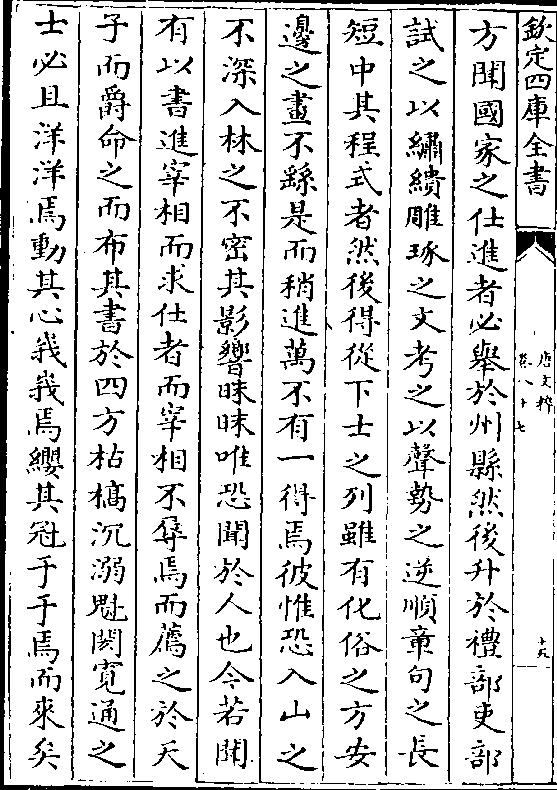 欽定四庫全書
唐文粹
卷八十七
十九
方聞國家之仕進者必舉於州縣然後升於禮部吏部
試之以繡繢雕琢之文考之以聲勢之逆順章句之長
短中其程式者然後得從下士之列雖有化俗之方安
邊之畫不繇是而稍進萬不有一得焉彼惟恐入山之
不深入林之不密其影響昧昧唯恐聞於人也今若聞
有以書進宰相而求仕者而宰相不辱焉而薦之於天
子而爵命之而布其書於四方枯槁沉溺魁閎寛通之
士必且洋洋焉動其心峩峩焉纓其冠于于焉而來矣